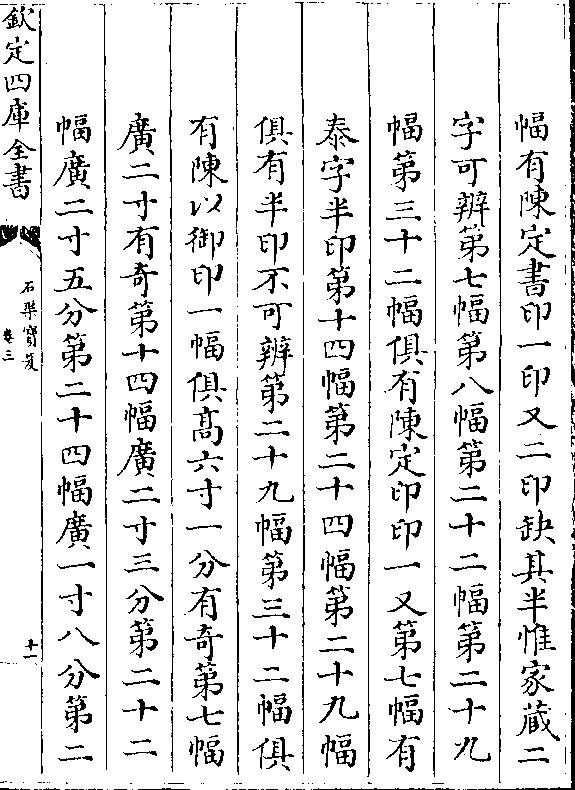 幅有陳定書印一印又二印缺其半惟家藏二
字可辨第七幅第八幅第二十二幅第二十九
幅第三十二幅俱有陳定印印一又第七幅有
泰字半印第十四幅第二十四幅第二十九幅
俱有半印不可辨第二十九幅第三十二幅俱
有陳以御印一幅俱髙六寸一分有奇第七幅
廣二寸有奇第十四幅廣二寸三分第二十二
幅廣二寸五分第二十四幅廣一寸八分第二
欽定四庫全書
石渠寳笈
卷三
十一